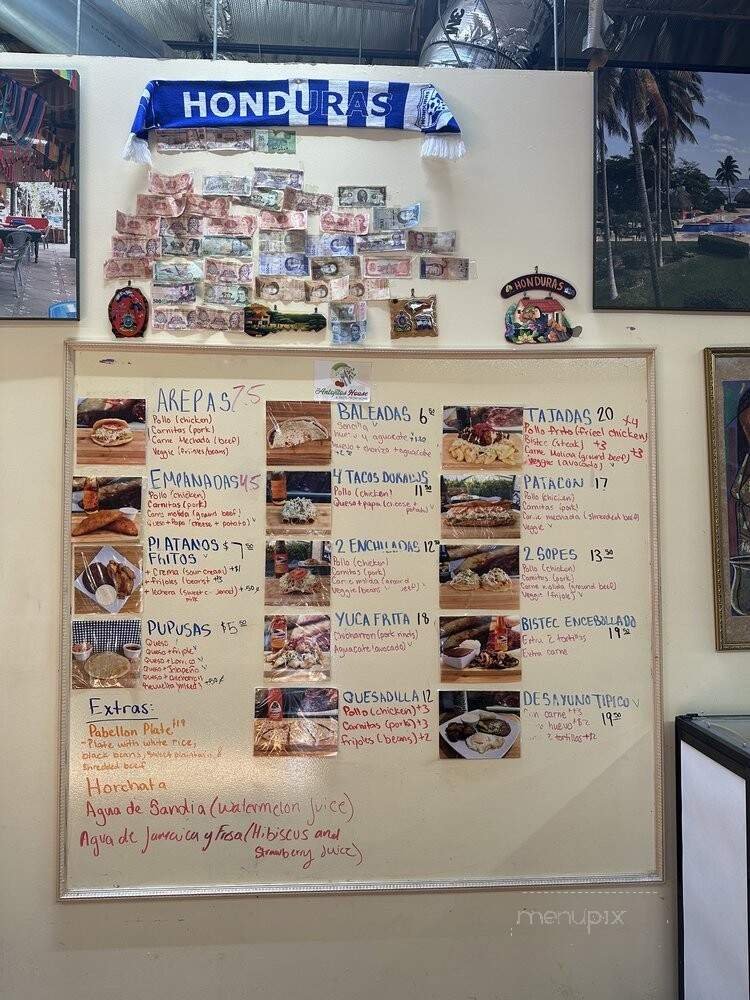 HONDURAS
HONDURAS
Antojitos House
AREPAS 7.5
Pollo (chicken)
Carnitas (pork)
Carne Mechada (beef)
Veggie (frijoles/beans)
EMPANADAS 4.5
Pollo (chicken)
Carnitas (pork)
Carne molida (ground beef)
Queso + Papa (cheese + potato) v
PLATANOS $7.50
FRITOS v
+ Crema (sour cream) +$1
+ frijoles (beans) +$
+ lechera (sweet conden) +.50¢
milk
PUPUSAS $5.50
Queso v
Queso + Frijole v
Queso + Loroco v
Queso + Jalapeño v
Queso + Chicharron
Revuelta (mixed)
BALEADAS 6
Sencilla v
huevo y aguacate
huevo + chorizo + aguacate
4 TACOS DORADOS
Pollo (chicken) 11.50
Queso + papa (cheese +
potato) v
2 ENCHILADAS 12.50
Pollo (chicken)
Carnitas (pork)
Carne molida (ground
Veggie (beans) beef)
YUCA FRITA 18
Chicharron (pork rinds)
Aguacate (avocado) v
QUESADILLA 12
Pollo (chicken) +3
Carnitas (pork) +3
Frijoles (beans) +2
TAJADAS 20
Pollo Frito (fried chicken) +4
Bistec (steak) +3
Carne Molida (ground beef) +3
Veggie (avocado) v
PATACON 17
Pollo (chicken)
Carnitas (pork)
Carne mechada (shredded beef)
Veggie v
2 SOPES 13.50
Pollo (chicken)
Carnitas (pork)
Carne molida (ground beef)
Veggie (frijole) v
BISTEC ENCEBOLLADO
Extra 2 tortillas 19.50
Extra carne
DESAYUNO TIPICO v
carne +3 19.50
huevo +$2
2 tortillas +$2
Extras:
Pabellon Plate $19
- Plate with white rice,
black beans, sweet plantain, &
shredded beef
Horchata
Agua de Sandia (Watermelon Juice)
Agua de Jamaica y Fresa (Hibiscus and
Strawberry Juice)
menupix